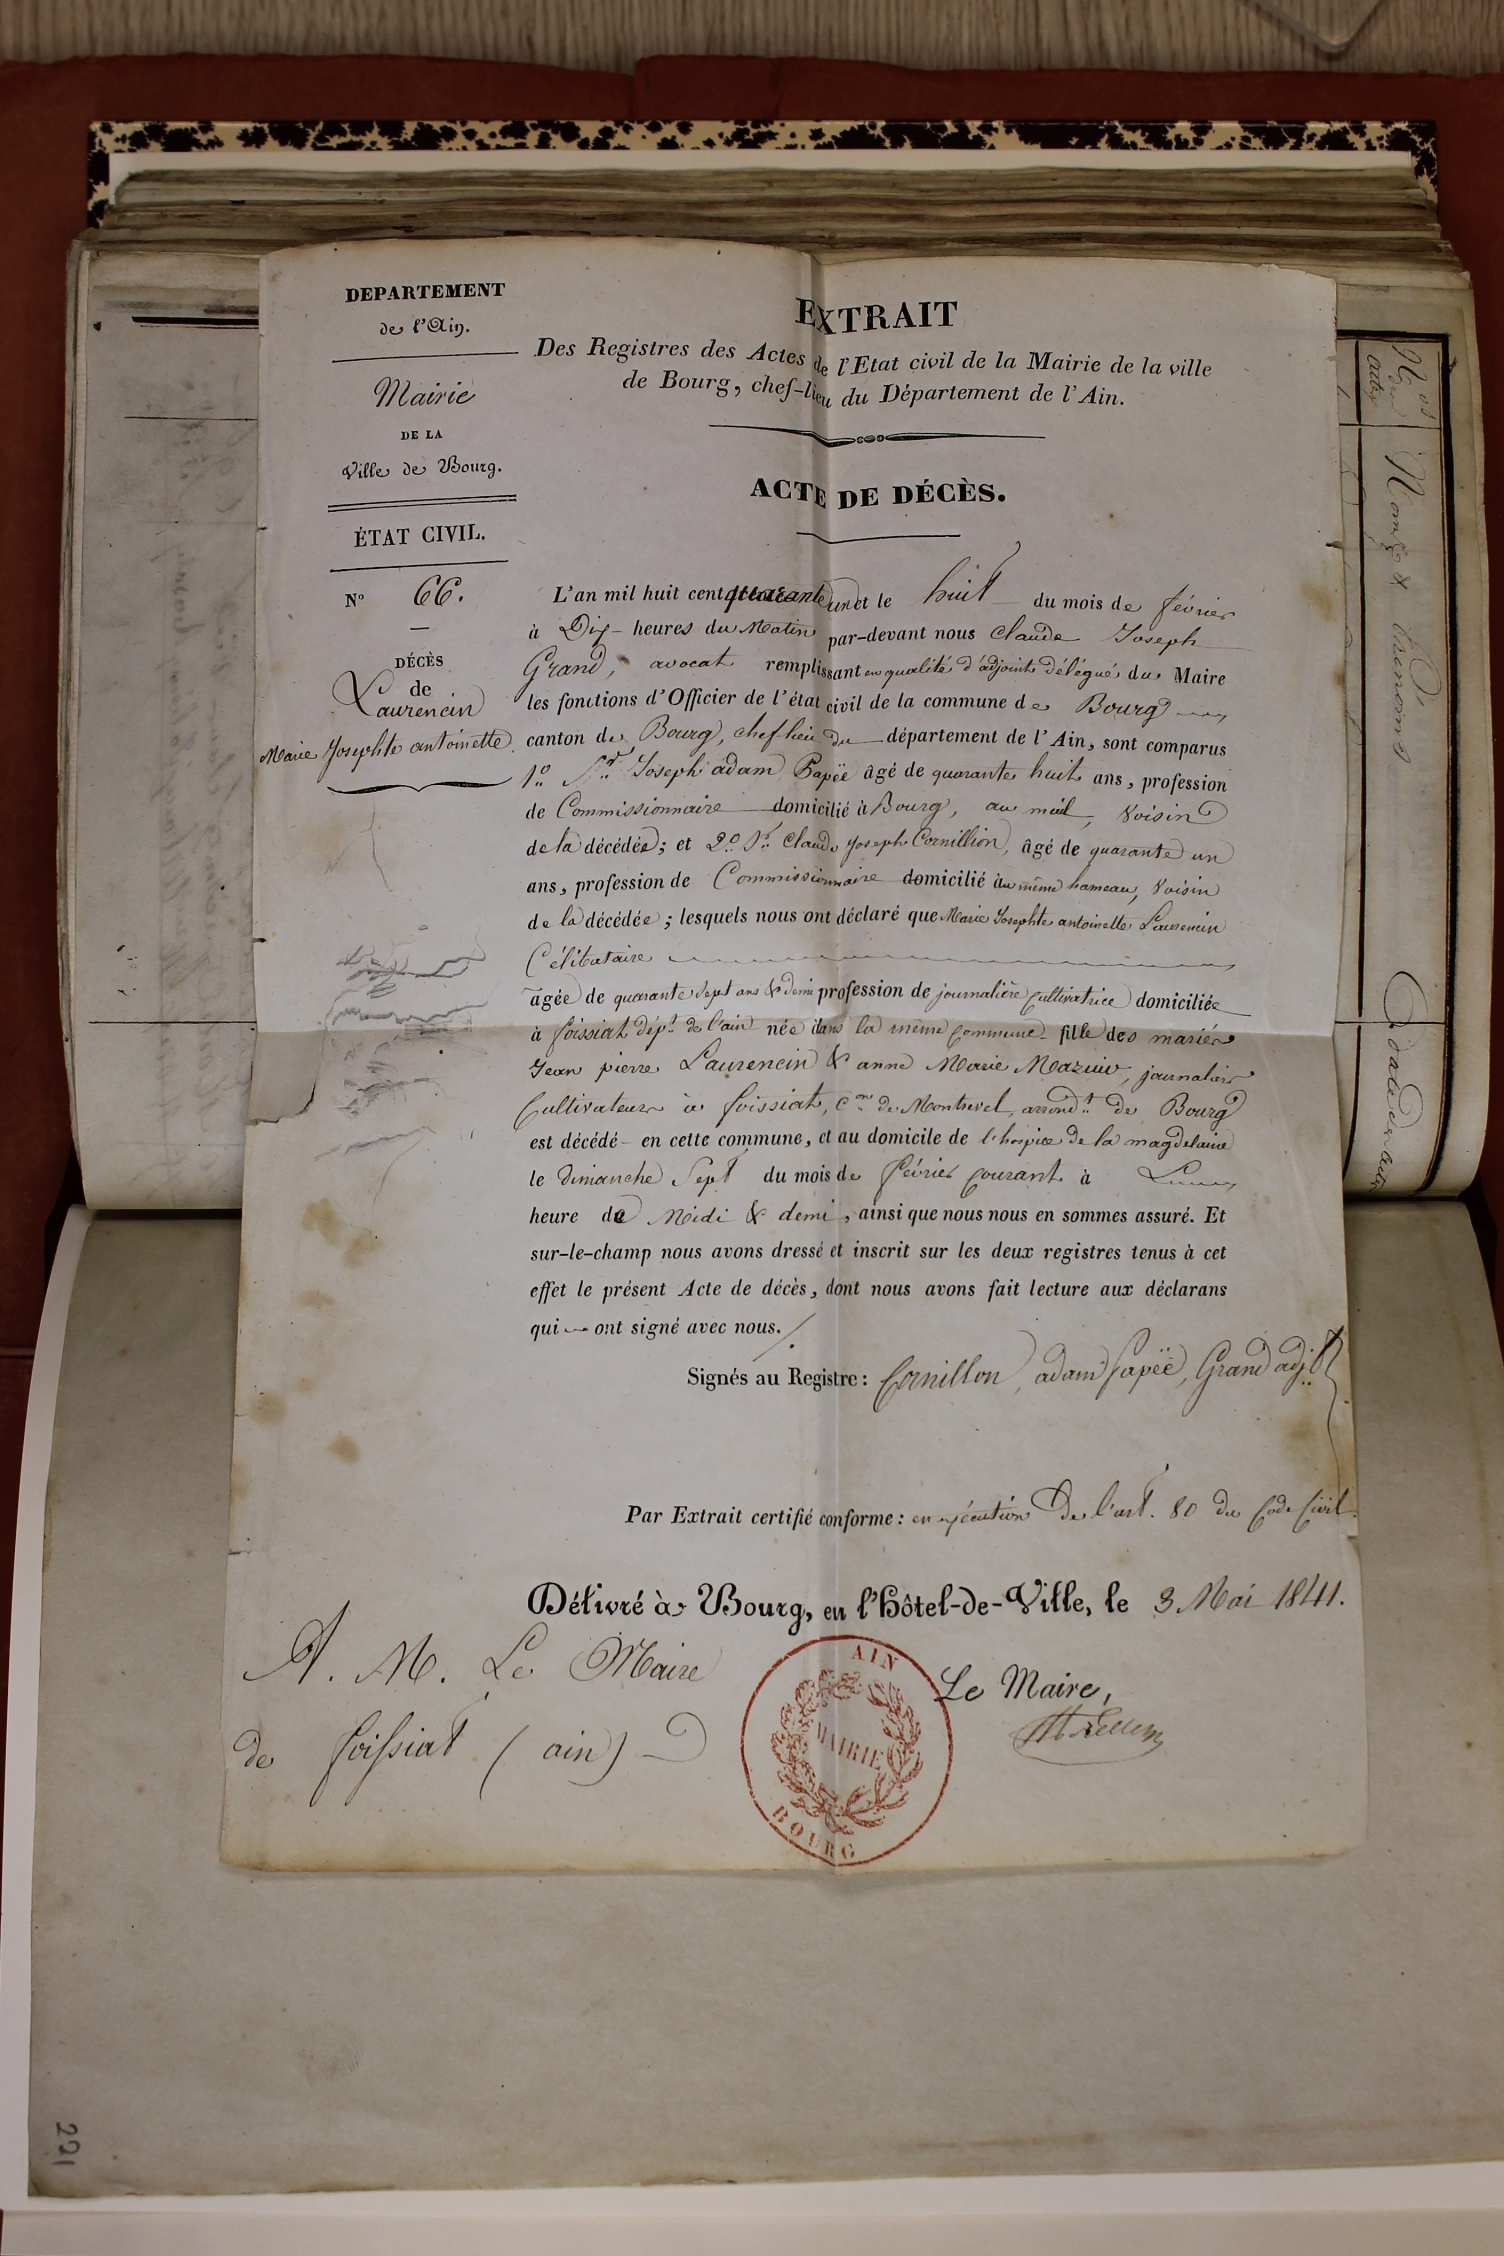 DEPARTEMENT
de l'Ain.
Mairie
DE LA
Ville de Bourg.
ÉTAT CIVIL.
N° 66.
DÉCÈS
de
Laurencin
Marie Josephte antoinette
EXTRAIT
Des Registres des Actes de l'Etat civil de la Mairie de la ville
de Bourg, chef-lieu du Département de l'Ain.
ACTE DE DÉCÈS.
L'an mil huit cent quarante un et le huit du mois de février
à Dix heures du Matin par-devant nous Claude Joseph
Grand, avocat remplissant en qualité d'adjoint délégué du Maire
les fonctions d'Officier de l'état civil de la commune de Bourg
canton de Bourg, chef lieu du département de l'Ain, sont comparus
1° Sr Joseph adam Papëe âgé de quarante huit ans, profession
de Commissionnaire domicilié à Bourg, au mail, voisin
de la décédée; et 2° Sr Claude Joseph Cornillion, âgé de quarante un
ans, profession de Commissionnaire domicilié au même hameau, voisin
de la décédée; lesquels nous ont déclaré que Marie Josephte antoinette Laurencin
Célibataire
agée de quarante sept ans & demi profession de journalière cultivatrice domiciliée
à foissiat dépt de l'ain née dans la même commune fille des mariés
Jean pierre Laurencin & anne Marie Mazuir, journaliers
Cultivateurs à foissiat, con de Montrevel, arrondt de Bourg
est décédé en cette commune, et au domicile de l'hospice de la magdelaine
le dimanche sept du mois de février courant à
heure de Midi & demi, ainsi que nous nous en sommes assuré. Et
sur-le-champ nous avons dressé et inscrit sur les deux registres tenus à cet
effet le présent Acte de décès, dont nous avons fait lecture aux déclarans
qui ont signé avec nous.
Signés au Registre: Cornillon, adam papëe, Grand adjt
Par Extrait certifié conforme: en exécution de l'art. 80 du Code Civil.
Délivré à Bourg, en l'Hôtel-de-Ville, le 3 Mai 1841.
A. M. Le Maire
de foissiat (ain)
Le Maire,
AIN
MAIRIE
BOURG
Nos
des
actes
Noms & Prénoms
221